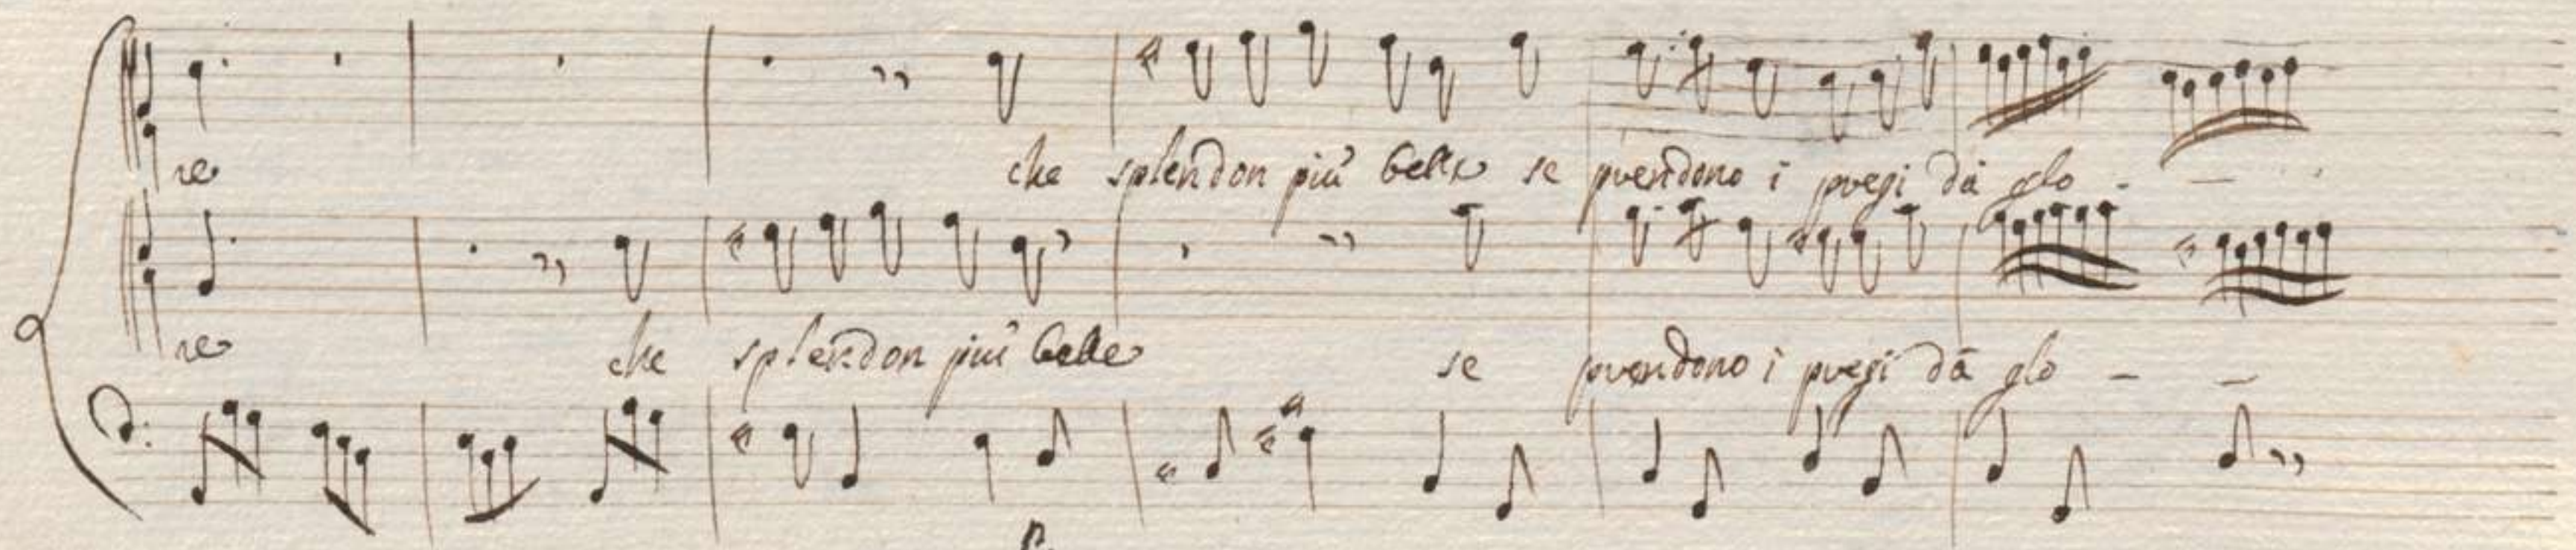 re che splendon più belle se prendono i pregi dà glo - -
re che splendon più belle se prendono i pregi dà glo - -